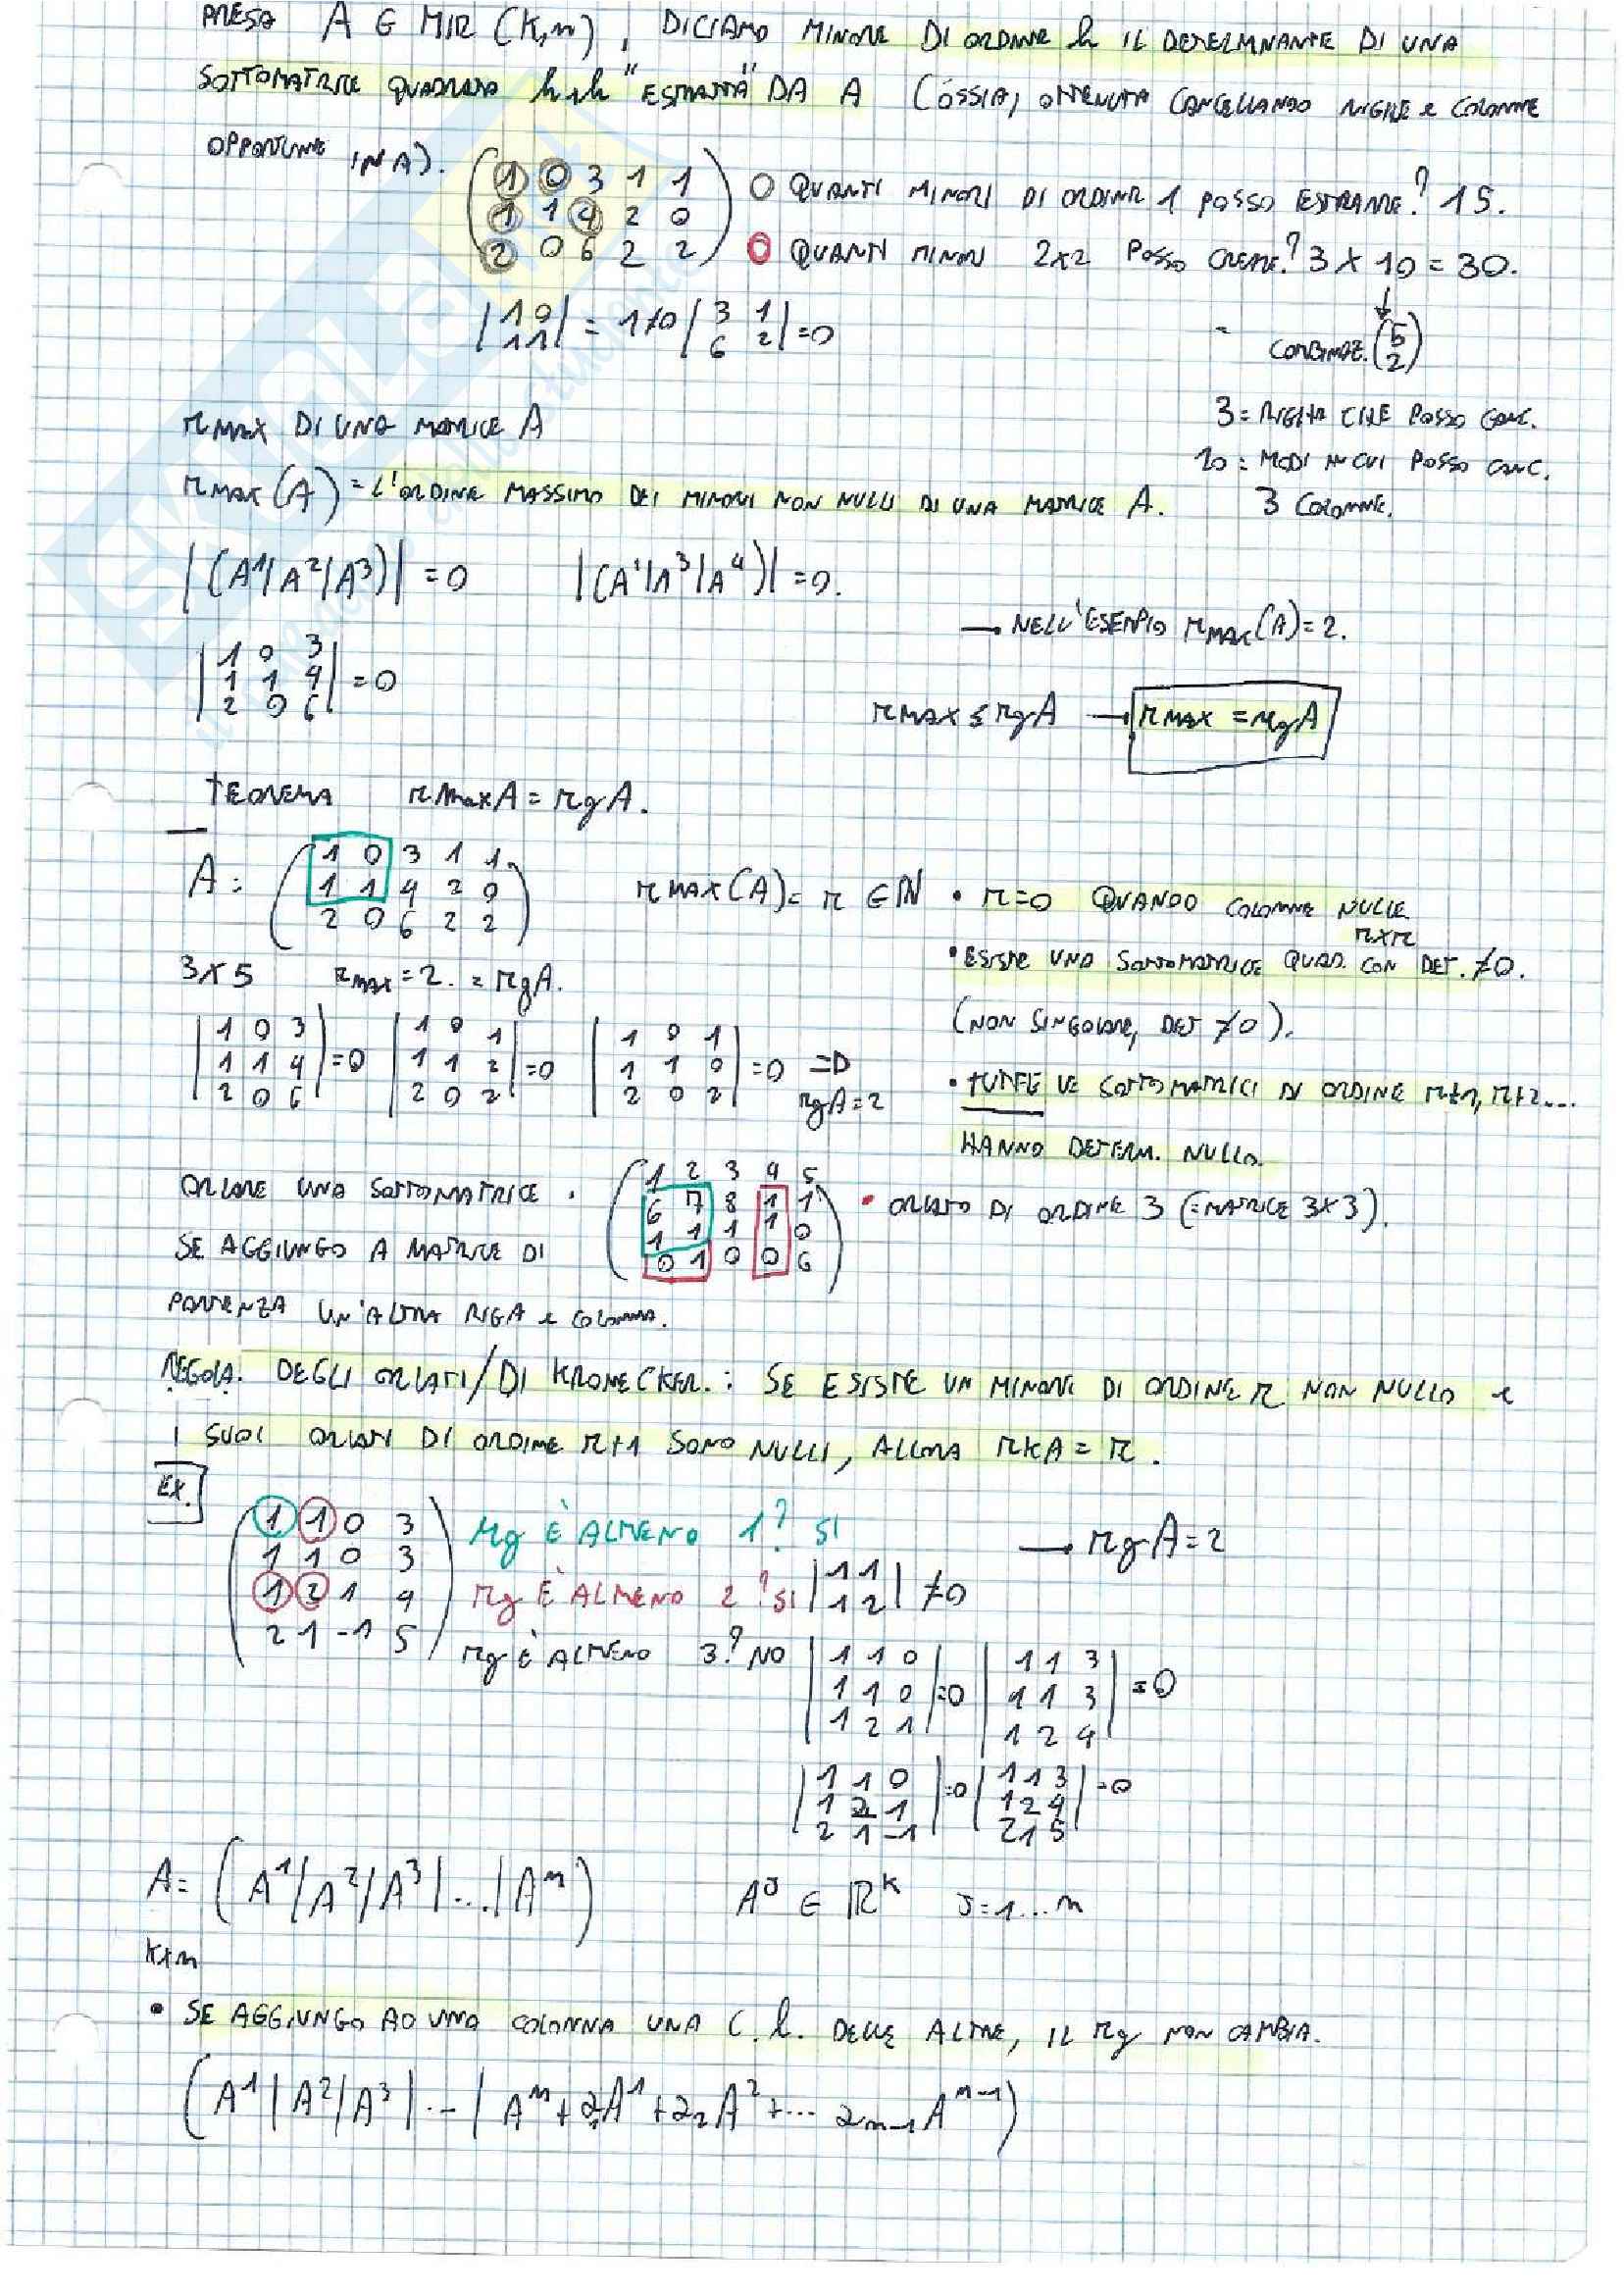 PRESA A ∈ MIR (K,n), DICIAMO MINORE DI ORDINE h IL DETERMINANTE DI UNA
SOTTOMATRICE QUADRATA hxh "ESTRATTA" DA A (OSSIA, OTTENUTA CANCELLANDO RIGHE e COLONNE
OPPORTUNE IN A).
1 0 3 1 1
1 1 4 2 0
2 0 6 2 2
O QUANTI MINORI DI ORDINE 1 POSSO ESTRARRE? 15.
O QUANTI MINORI 2x2 POSSO CREARE? 3 x 10 = 30.
|1 0 / 1 1| = 1≠0 |3 1 / 6 2| = 0
COMBINAZ. (5 2)
3 = RIGHE CHE POSSO CANC.
10 = MODI IN CUI POSSO CANC.
3 COLONNE.
rMAX DI UNA MATRICE A
rMAX (A) = L'ORDINE MASSIMO DEI MINORI NON NULLI DI UNA MATRICE A.
|(A¹|A²|A³)| = 0 |(A¹|A³|A⁴)| = 0.
→ NELL'ESEMPIO rMAX(A) = 2.
|1 0 3 / 1 1 4 / 2 0 6| = 0
rMAX ≤ rgA → rMAX = rgA
TEOREMA rMaxA = rgA.
A =
1 0 3 1 1
1 1 4 2 0
2 0 6 2 2
3x5 rMAX = 2. = rgA.
rMAX(A) = r ∈ IN • r=0 QUANDO COLONNE NULLE
• ESISTE UNA SOTTOMATRICE QUAD. rxr CON DET. ≠0.
(NON SINGOLARE, DET ≠0).
• TUTTE LE SOTTOMATRICI DI ORDINE r+1, r+2...
HANNO DETERM. NULLO.
|1 0 3 / 1 1 4 / 2 0 6| = 0 |1 0 1 / 1 1 2 / 2 0 2| = 0 |1 0 1 / 1 1 0 / 2 0 2| = 0 ⇒ rgA = 2
ORLARE UNA SOTTOMATRICE.
SE AGGIUNGO A MATRICE DI
PARTENZA UN'ALTRA RIGA e COLONNA.
1 2 3 4 5
6 7 8 1 1
1 1 1 1 0
0 1 0 0 6
• ORLATO DI ORDINE 3 (=MATRICE 3x3).
REGOLA DEGLI ORLATI/DI KRONECKER.: SE ESISTE UN MINORE DI ORDINE r NON NULLO e
I SUOI ORLATI DI ORDINE r+1 SONO NULLI, ALLORA rkA = r.
EX.
1 1 0 3
1 1 0 3
1 2 1 4
2 1 -1 5
rg È ALMENO 1? SI
→ rgA = 2
rg È ALMENO 2? SI |1 1 / 1 2| ≠0
rg È ALMENO 3? NO |1 1 0 / 1 1 0 / 1 2 1| = 0 |1 1 3 / 1 1 3 / 1 2 4| = 0
|1 1 0 / 1 2 1 / 2 1 -1| = 0 |1 1 3 / 1 2 4 / 2 1 5| = 0
A = (A¹|A²|A³|...|Aⁿ) Aᴶ ∈ IRᴷ J=1...n
Kxn
• SE AGGIUNGO AD UNA COLONNA UNA C.l. DELLE ALTRE, IL rg NON CAMBIA.
(A¹|A²|A³|...|Aⁿ + a₁A¹ + a₂A² + ... aₙ₋₁Aⁿ⁻¹)